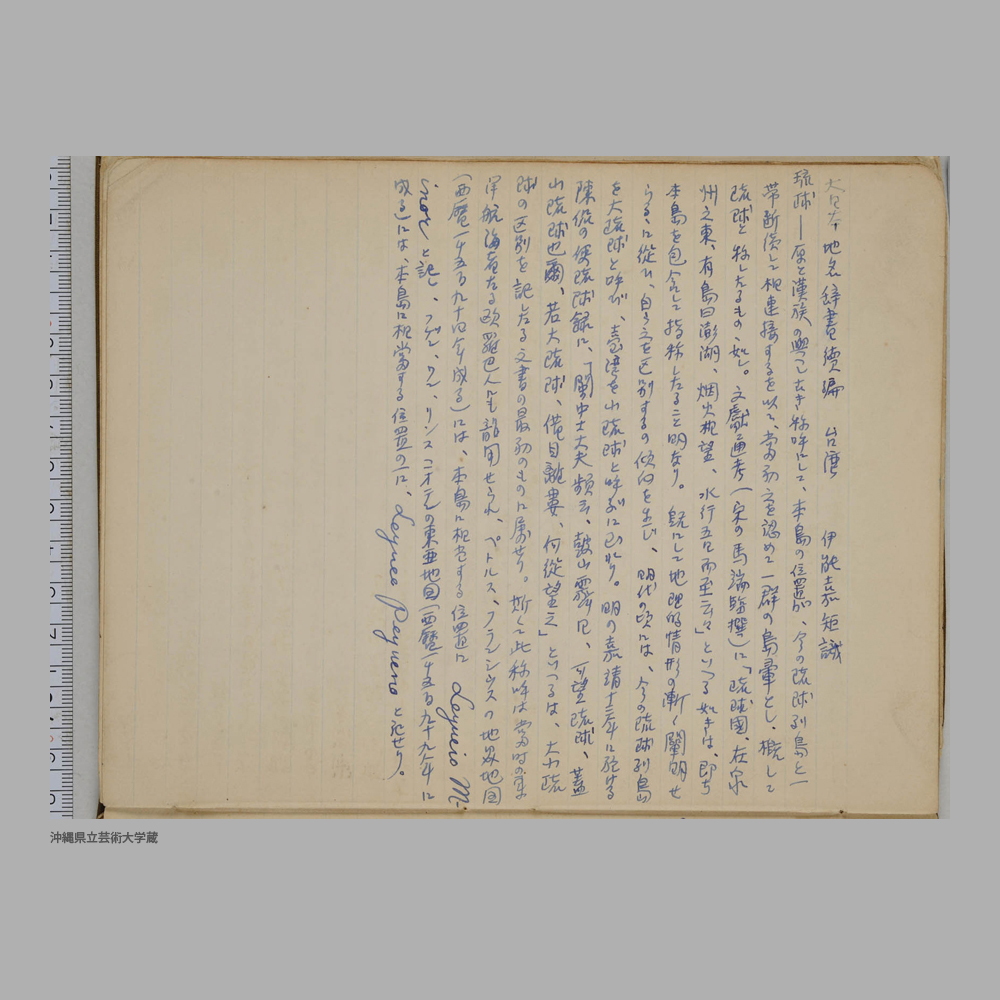 大日本地名辞書續編 台湾 伊能嘉矩識
琉球——原と漢族の與へたき称呼にして、本島の位置が、今の琉球列島と一
帯断續して相連接するを以て、當初之を認めて一群の島彙とし、概して
琉球と称したるもの如し。文献通考(宋の馬端臨撰)に「琉球國、在泉
州之東、有島曰澎湖、烟火相望、水行五日而至云々」といへる如きは、即ち
本島を包含して指称したること明なり。既にして地理的情形の漸く闡明せ
らるゝに従ひ、自ら之を区別するの傾向を生じ、明代の頃には、今の琉球列島
を大琉球と呼び、臺湾を小琉球と呼ぶに至れり。明の嘉靖十三年に記せる
陳侃の使琉球録に、「閩中士大夫頻云、鼓山霽日、可望琉球、蓋
小琉球也爾、若大琉球、借目離婁、何従望之」といへるは、大小琉
球の区別を記したる文書の最初のものに属せり。斯くて此称呼は當時の東
洋航海者たる欧羅巴人にも襲用せられ、ペトルス、プランシウスの地界地図
(西暦一千五百九十四年成る)には、本島に相当する位置に Lequeio M-
inor と記し、フアン、ワン、リンスコオテンの東亜地図(西暦一千五百九十九年に
成る)には、本島に相當する位置の一に、Lequeo Pequeno と記せり。
沖縄県立芸術大学蔵